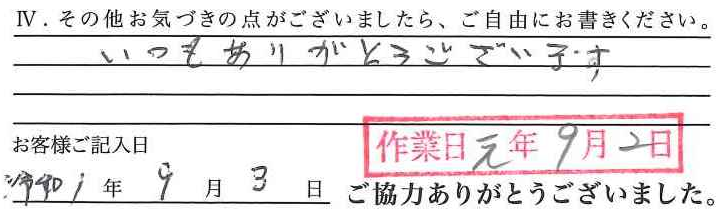 Ⅳ．その他お気づきの点がございましたら、ご自由にお書きください。
いつもありがとうございます
お客様ご記入日
作業日元年9月2日
令和1年9月3日
ご協力ありがとうございました。